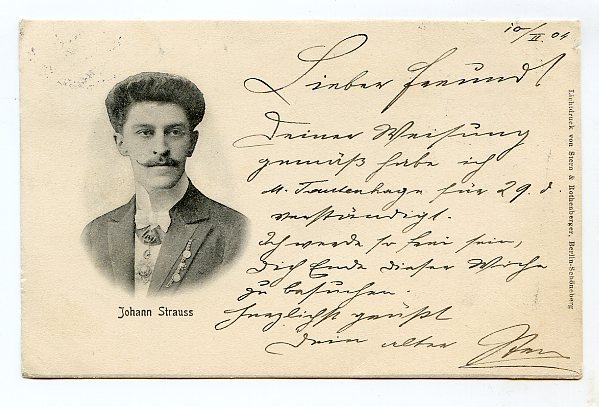 10/II 04
Lieber Freund!
Deiner Weisung
gemäß habe ich
M. Tautenhayn für 29. d.
verständigt.
Ich werde so frei sein,
Dich Ende dieser Woche
zu besuchen.
Herzlichst grüßt
Dein alter
Johann Strauss
Lichtdruck von Stern & Rothenberger, Berlin-Schöneberg